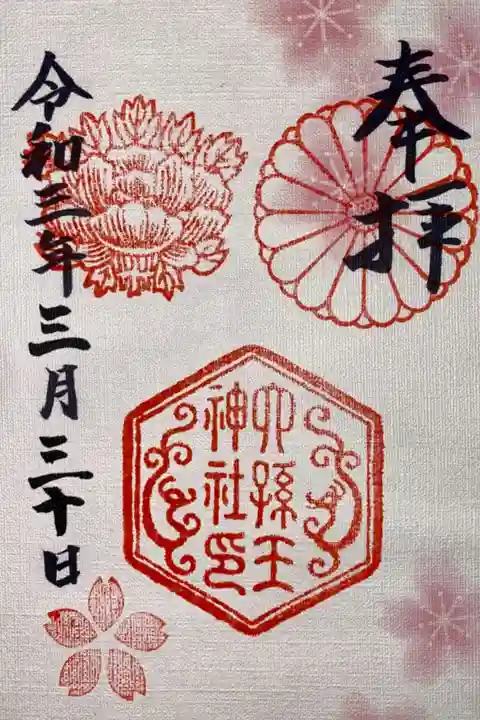 奉拝
六孫王
神社印
令和三年三月三十日